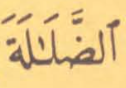 ٱلضَّلَـٰلَةَ